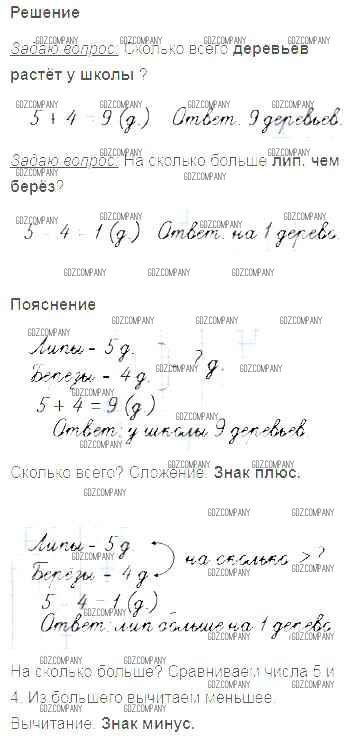 Решение
Задаю вопрос. Сколько всего деревьев
растёт у школы ?
5 + 4 = 9 (д.) Ответ. 9 деревьев.
Задаю вопрос. На сколько больше лип, чем
берёз?
5 - 4 = 1 (д.) Ответ. на 1 дерево.
Пояснение
Липы - 5 д.
Берёзы - 4 д. - ? д.
5 + 4 = 9 (д.)
Ответ: у школы 9 деревьев
Сколько всего? Сложение. Знак плюс.
Липы - 5 д
Берёзы - 4 д на сколько > ?
5 - 4 = 1 (д.)
Ответ: лип больше на 1 дерево
На сколько больше? Сравниваем числа 5 и
4. Из большего вычитаем меньшее.
Вычитание. Знак минус.
GDZCOMPANY